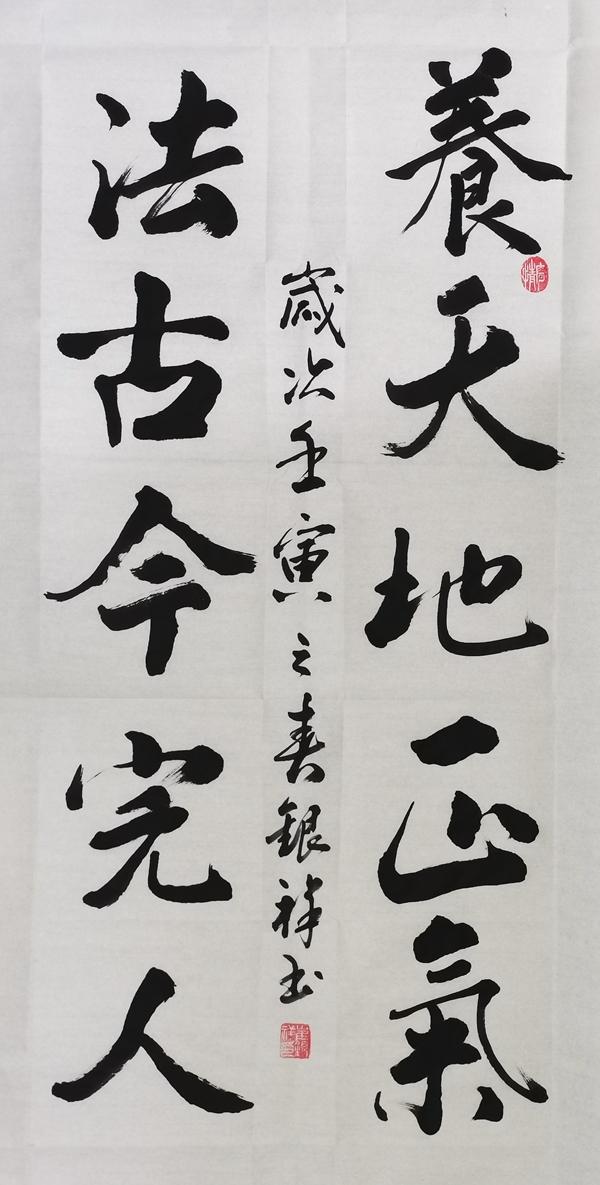 養天地正氣
法古今完人
歲次壬寅之春銀祥书